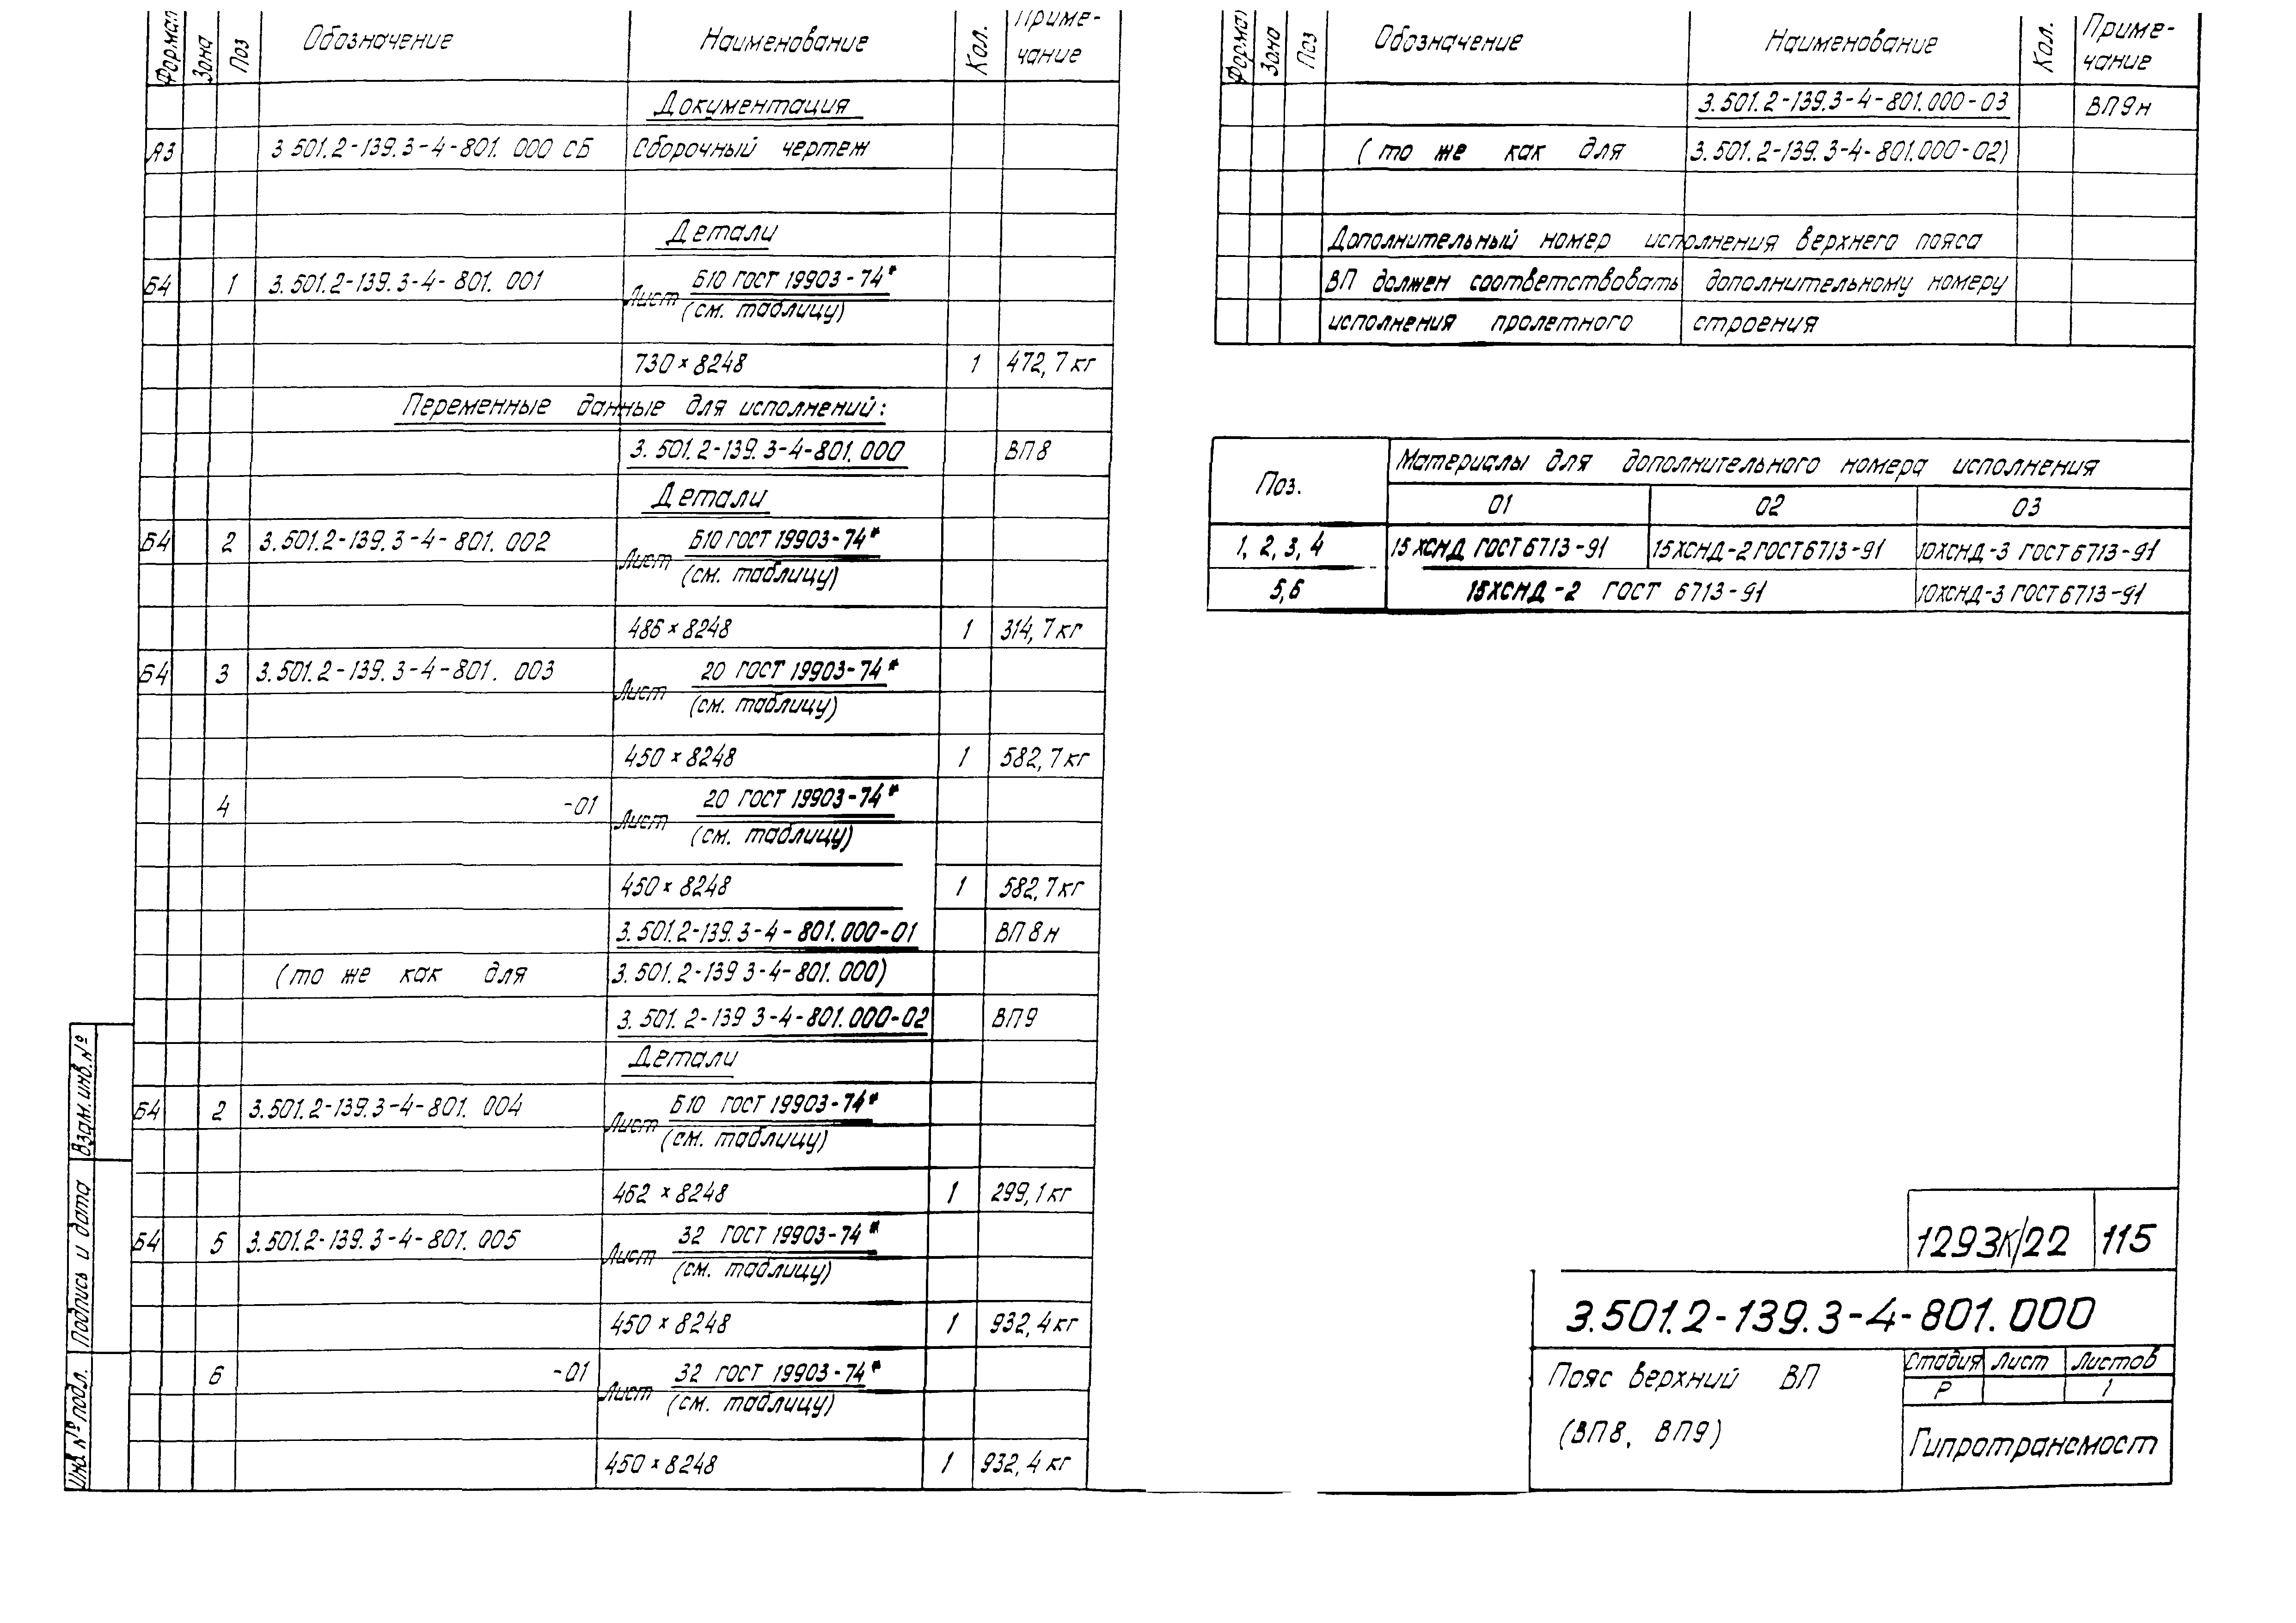 Формат Зона Поз Обозначение Наименование Кол. Приме-
чание
Документация
А3 3 501.2-139.3-4-801. 000 СБ Сборочный чертеж
Детали
Б4 1 3.501.2-139.3-4-801. 001 Лист Б10 ГОСТ 19903-74*
(см. таблицу)
730 × 8248 1 472,7 кг
Переменные данные для исполнений:
3.501.2-139.3-4-801.000 ВП8
Детали
Б4 2 3.501.2-139.3-4-801. 002 Лист Б10 ГОСТ 19903-74*
(см. таблицу)
486 × 8248 1 314,7 кг
Б4 3 3.501.2-139.3-4-801. 003 Лист 20 ГОСТ 19903-74*
(см. таблицу)
450 × 8248 1 582,7 кг
4 -01 Лист 20 ГОСТ 19903-74*
(см. таблицу)
450 × 8248 1 582,7 кг
3.501.2-139.3-4-801.000-01 ВП8н
(то же как для 3.501.2-139 3-4-801.000)
3.501.2-139 3-4-801.000-02 ВП9
Детали
Б4 2 3.501.2-139.3-4-801. 004 Лист Б10 ГОСТ 19903-74*
(см. таблицу)
462 × 8248 1 299,1 кг
Б4 5 3.501.2-139.3-4-801. 005 Лист 32 ГОСТ 19903-74*
(см. таблицу)
450 × 8248 1 932,4 кг
6 -01 Лист 32 ГОСТ 19903-74*
(см. таблицу)
450 × 8248 1 932,4 кг
Взам. инв. №
Подпись и дата
Инв № подл.
Формат Зона Поз Обозначение Наименование Кол. Приме-
чание
3.501.2-139.3-4-801.000-03 ВП9н
(то же как для 3.501.2-139.3-4-801.000-02)
Дополнительный номер исполнения верхнего пояса
ВП должен соответствовать дополнительному номеру
исполнения пролетного строения
Поз. Материалы для дополнительного номера исполнения
01 02 03
1, 2, 3, 4 15ХСНД ГОСТ 6713-91 15ХСНД-2 ГОСТ 6713-91 10ХСНД-3 ГОСТ 6713-91
5,6 15ХСНД-2 ГОСТ 6713-91 10ХСНД-3 ГОСТ 6713-91
1293К/22 115
3.501.2-139.3-4-801.000
Пояс верхний ВП
(ВП8, ВП9)
Стадия Лист Листов
Р 1
Гипротрансмост